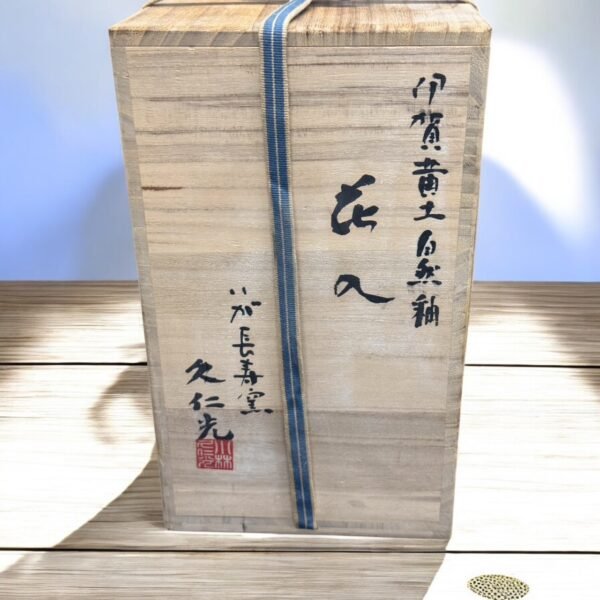 伊賀黄土自然釉
花入
いが長寿窯
久仁光
小林